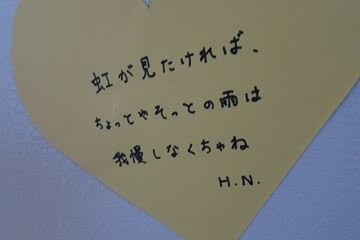 虹が見たければ、
ちょっとやそっとの雨は
我慢しなくちゃね
H.N.